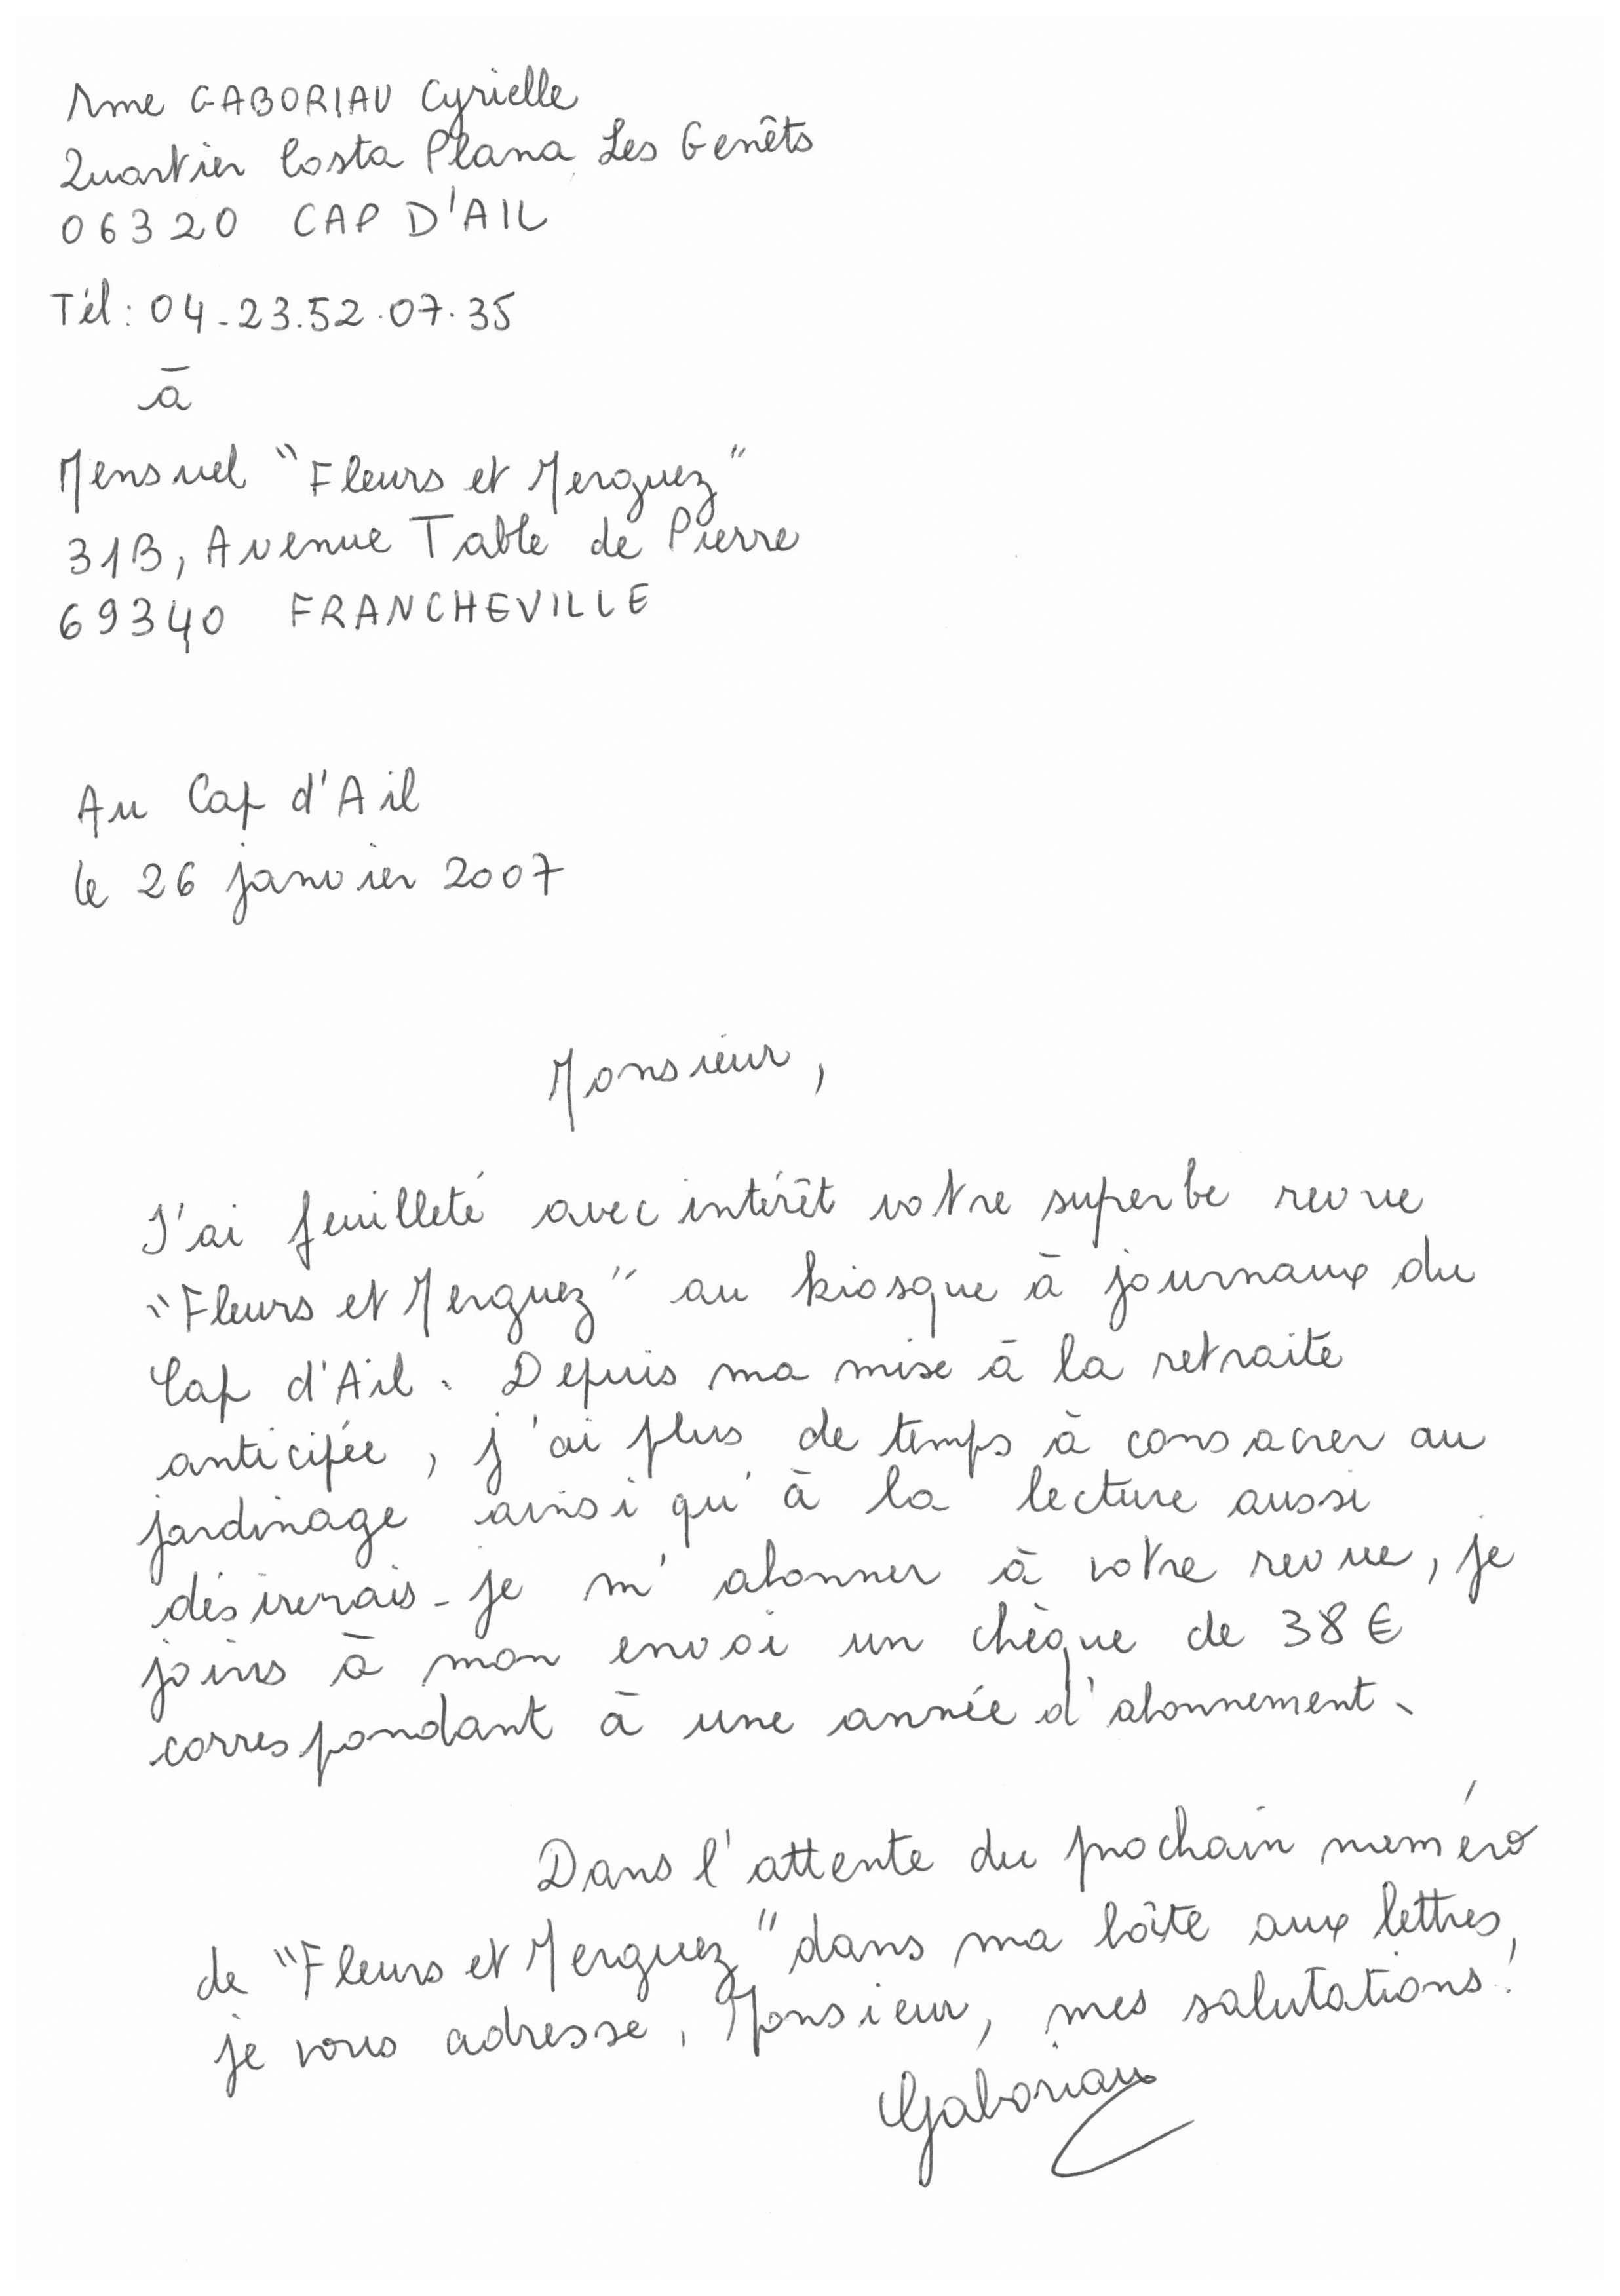 Mme GABORIAU Cyrielle
Quartier Costa Plana Les Genêts
06320 CAP D'AIL
Tél : 04-23.52.07.35
à
Mensuel "Fleurs et Merguez"
31B, Avenue Table de Pierre
69340 FRANCHEVILLE
Au Cap d'Ail
le 26 janvier 2007
Monsieur,
J'ai feuilleté avec intérêt votre superbe revue
"Fleurs et Merguez" au kiosque à journaux du
Cap d'Ail. Depuis ma mise à la retraite
anticipée, j'ai plus de temps à consacrer au
jardinage ainsi qu'à la lecture aussi
désirerais-je m'abonner à votre revue, je
joins à mon envoi un chèque de 38 €
correspondant à une année d'abonnement.
Dans l'attente du prochain numéro
de "Fleurs et Merguez" dans ma boîte aux lettres,
je vous adresse, Monsieur, mes salutations.
Gaboriau